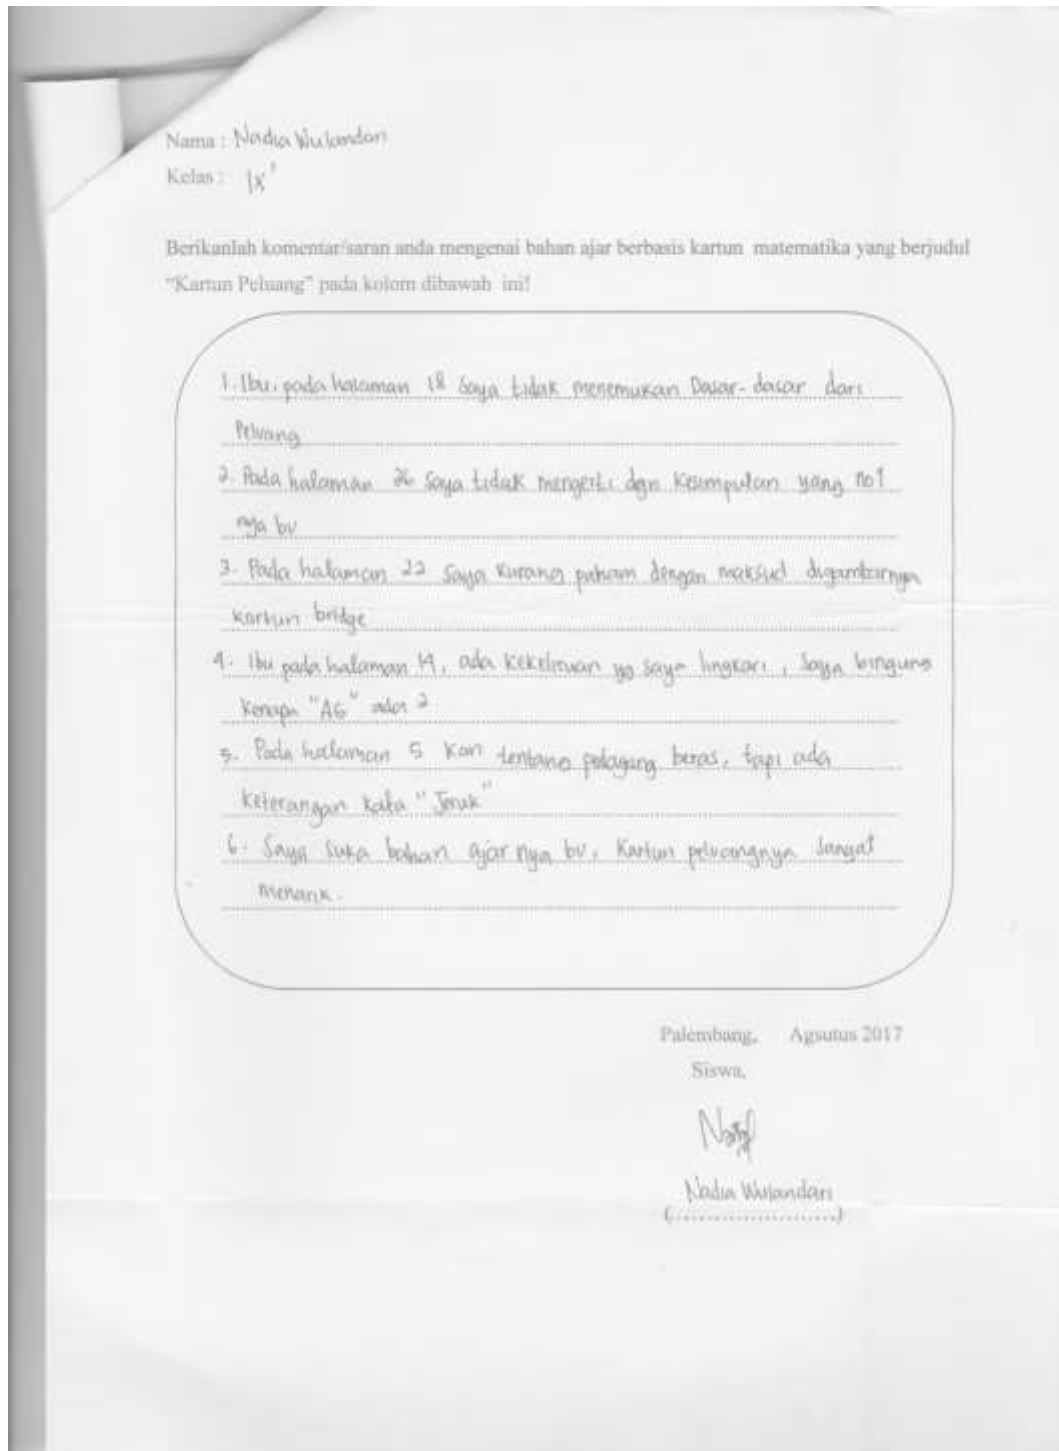 Nama : Nadia Wulandari
Kelas : IX¹
Berikanlah komentar/saran anda mengenai bahan ajar berbasis kartun matematika yang berjudul
“Kartun Peluang” pada kolom dibawah ini!
1. Ibu, pada halaman 18 saya tidak menemukan Dasar-dasar dari
Peluang
2. Pada halaman 26 saya tidak mengerti dgn kesimpulan yang no 1
nya bu
3. Pada halaman 22 saya kurang paham dengan maksud digambarnya
kartun bridge
4. Ibu pada halaman 14, ada kekeliruan yg saya lingkari, saya bingung
kenapa "A6" ada 2
5. Pada halaman 5 kan tentang pedagang beras, tapi ada
keterangan kata "Jeruk"
6. Saya suka bahan ajar nya bu, Kartun peluangnya sangat
menarik.
Palembang, Agsutus 2017
Siswa,
Nadia Wulandari
(......................)